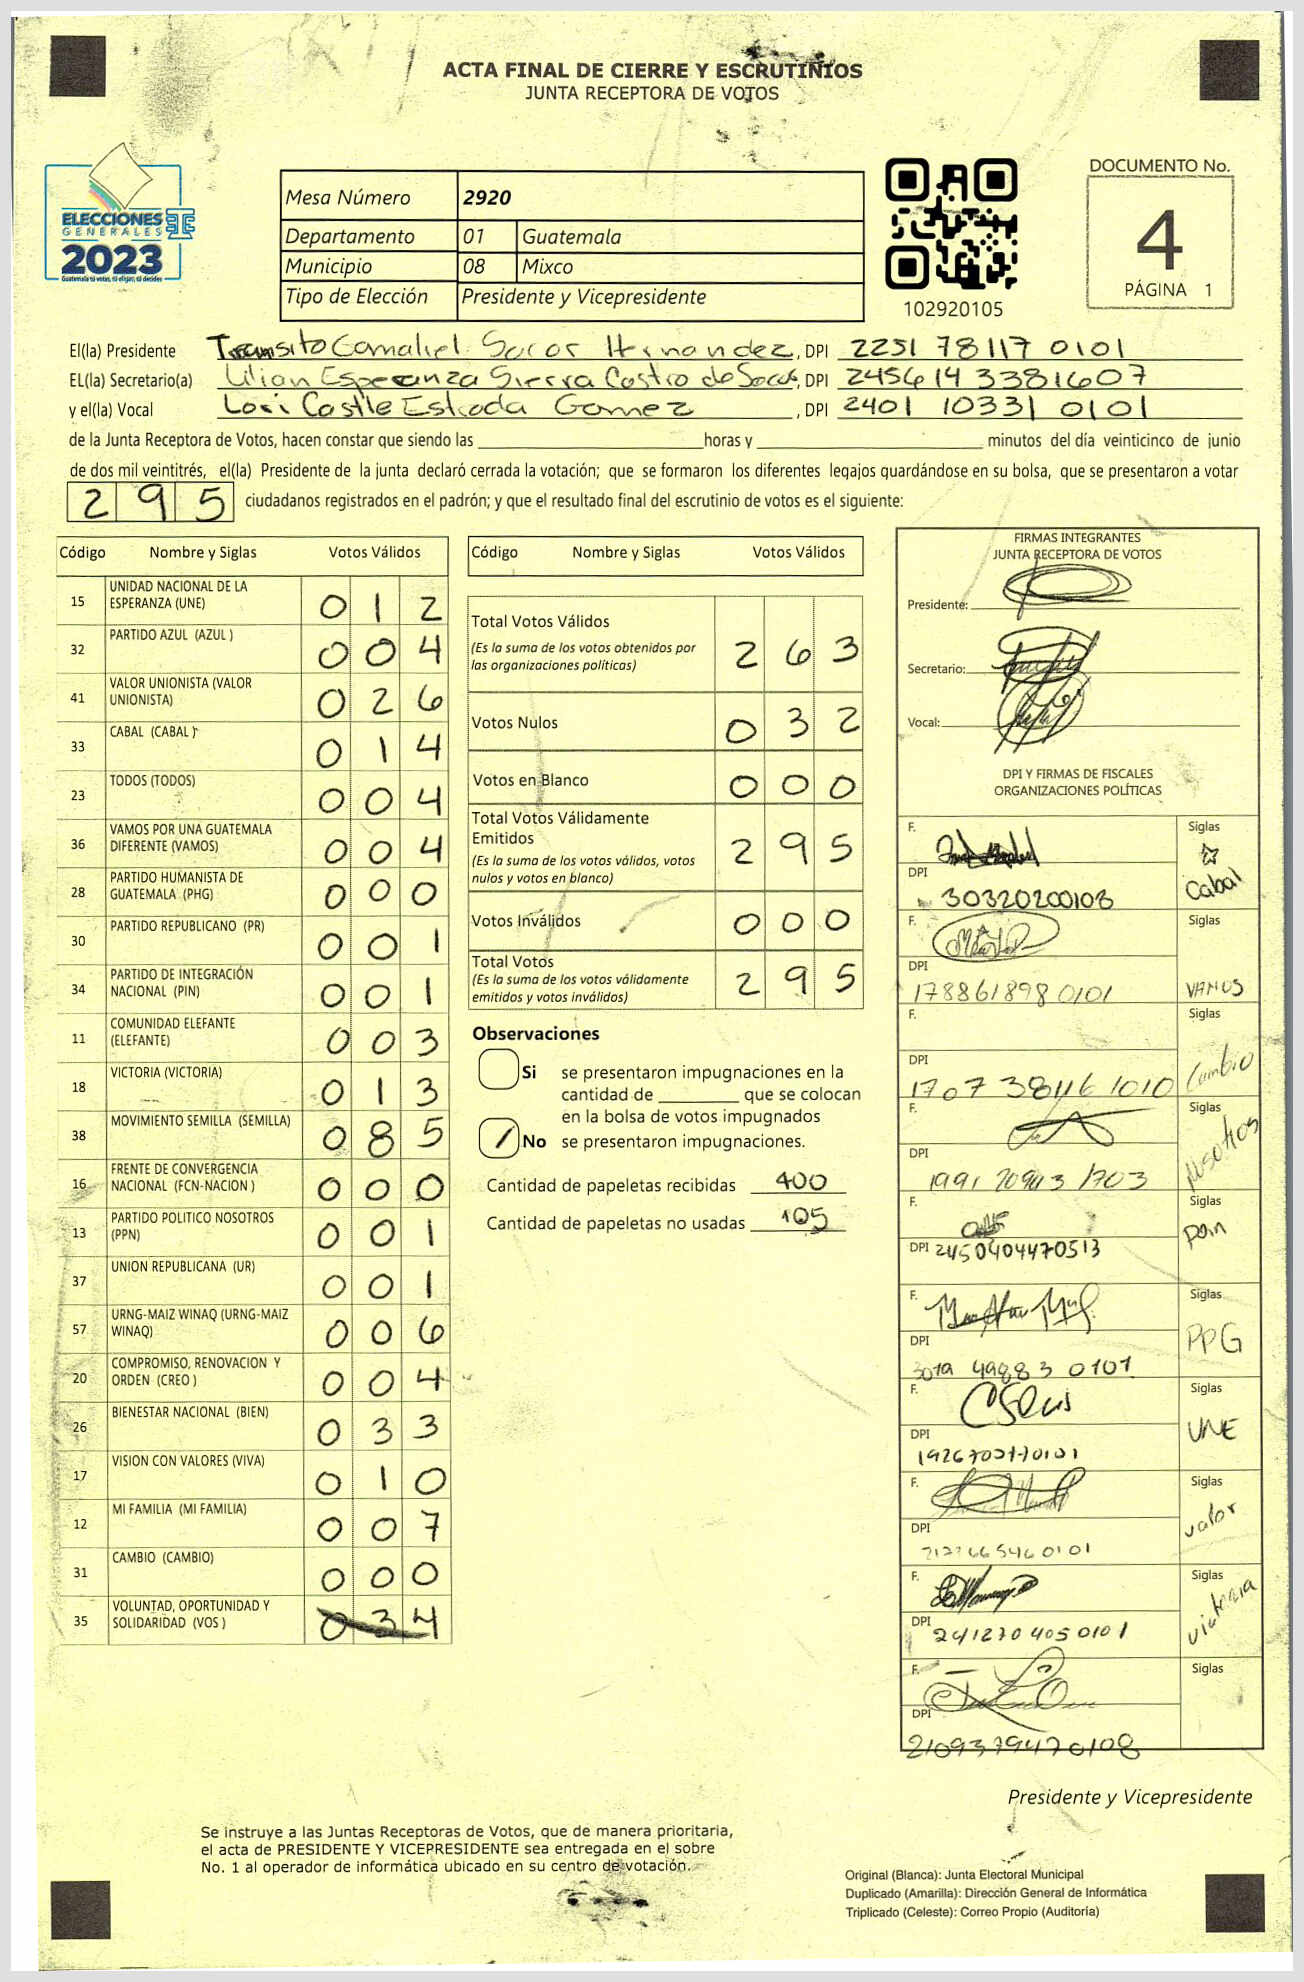 ACTA FINAL DE CIERRE Y ESCRUTINIOS
JUNTA RECEPTORA DE VOTOS
ELECCIONES
GENERALES
2023
Guatemala tú votas, tú eliges, tú decides
Mesa Número 2920
Departamento 01 Guatemala
Municipio 08 Mixco
Tipo de Elección Presidente y Vicepresidente
102920105
DOCUMENTO No.
4
PÁGINA 1
El(la) Presidente Transito Gamaliel Socor Hernandez, DPI 2251 78117 0101
EL(la) Secretario(a) Lilian Esperanza Sierra Castro de Socor, DPI 2456143381607
y el(la) Vocal Lori Castle Estrada Gomez, DPI 2401 10331 0101
de la Junta Receptora de Votos, hacen constar que siendo las ____ horas y ____ minutos del día veinticinco de junio
de dos mil veintitrés, el(la) Presidente de la junta declaró cerrada la votación; que se formaron los diferentes legajos quardándose en su bolsa, que se presentaron a votar
295 ciudadanos registrados en el padrón; y que el resultado final del escrutinio de votos es el siguiente:
Código Nombre y Siglas Votos Válidos
15 UNIDAD NACIONAL DE LA ESPERANZA (UNE) 012
32 PARTIDO AZUL (AZUL ) 004
41 VALOR UNIONISTA (VALOR UNIONISTA) 026
33 CABAL (CABAL ) 014
23 TODOS (TODOS) 004
36 VAMOS POR UNA GUATEMALA DIFERENTE (VAMOS) 004
28 PARTIDO HUMANISTA DE GUATEMALA (PHG) 000
30 PARTIDO REPUBLICANO (PR) 001
34 PARTIDO DE INTEGRACIÓN NACIONAL (PIN) 001
11 COMUNIDAD ELEFANTE (ELEFANTE) 003
18 VICTORIA (VICTORIA) 013
38 MOVIMIENTO SEMILLA (SEMILLA) 085
16 FRENTE DE CONVERGENCIA NACIONAL (FCN-NACION ) 000
13 PARTIDO POLITICO NOSOTROS (PPN) 001
37 UNION REPUBLICANA (UR) 001
57 URNG-MAIZ WINAQ (URNG-MAIZ WINAQ) 006
20 COMPROMISO, RENOVACION Y ORDEN (CREO ) 004
26 BIENESTAR NACIONAL (BIEN) 033
17 VISION CON VALORES (VIVA) 010
12 MI FAMILIA (MI FAMILIA) 007
31 CAMBIO (CAMBIO) 000
35 VOLUNTAD, OPORTUNIDAD Y SOLIDARIDAD (VOS ) 034
Código Nombre y Siglas Votos Válidos
Total Votos Válidos 263
(Es la suma de los votos obtenidos por
las organizaciones políticas)
Votos Nulos 032
Votos en Blanco 000
Total Votos Válidamente
Emitidos 295
(Es la suma de los votos válidos, votos
nulos y votos en blanco)
Votos Inválidos 000
Total Votos 295
(Es la suma de los votos válidamente
emitidos y votos inválidos)
Observaciones
Si se presentaron impugnaciones en la
cantidad de ____ que se colocan
en la bolsa de votos impugnados
No se presentaron impugnaciones.
Cantidad de papeletas recibidas 400
Cantidad de papeletas no usadas 105
FIRMAS INTEGRANTES
JUNTA RECEPTORA DE VOTOS
Presidente:
Secretario:
Vocal:
DPI Y FIRMAS DE FISCALES
ORGANIZACIONES POLÍTICAS
F. Siglas
DPI 30320200108 Cabal
F. Siglas
DPI 178861898 0101 VAMOS
F. Siglas
DPI 1707 38116 1010 Cambio
F. Siglas
DPI Nosotros
F. Siglas
DPI 2450404470513
F. Siglas
DPI 3019 49883 0101 PPG
F. Siglas
DPI UNE
F. Siglas
DPI valor
F. Siglas
DPI 241270405 0101 victoria
F. Siglas
DPI 2109379470108
Presidente y Vicepresidente
Se instruye a las Juntas Receptoras de Votos, que de manera prioritaria,
el acta de PRESIDENTE Y VICEPRESIDENTE sea entregada en el sobre
No. 1 al operador de informática ubicado en su centro de votación.
Original (Blanca): Junta Electoral Municipal
Duplicado (Amarilla): Dirección General de Informática
Triplicado (Celeste): Correo Propio (Auditoría)